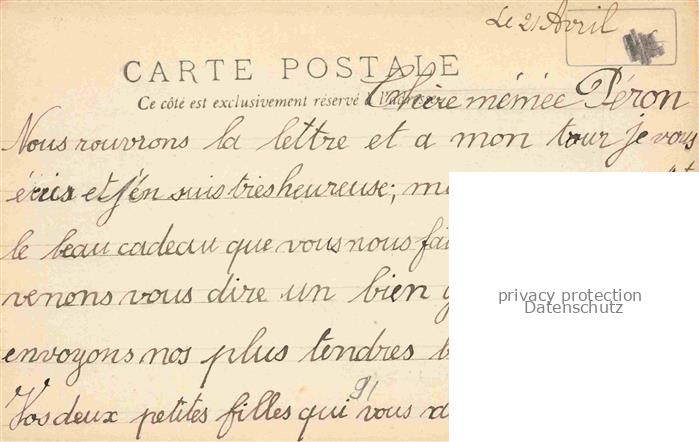 Le 21 Avril
CARTE POSTALE
Ce côté est exclusivement réservé à l'adresse
Chère mémée Péron
Nous rouvrons la lettre et a mon tour je vous
écris et j'en suis tres heureuse;
le beau cadeau que vous nous
venons vous dire un bien
envoyons nos plus tendres
91
Vos deux petites filles qui vous
privacy protection
Datenschutz